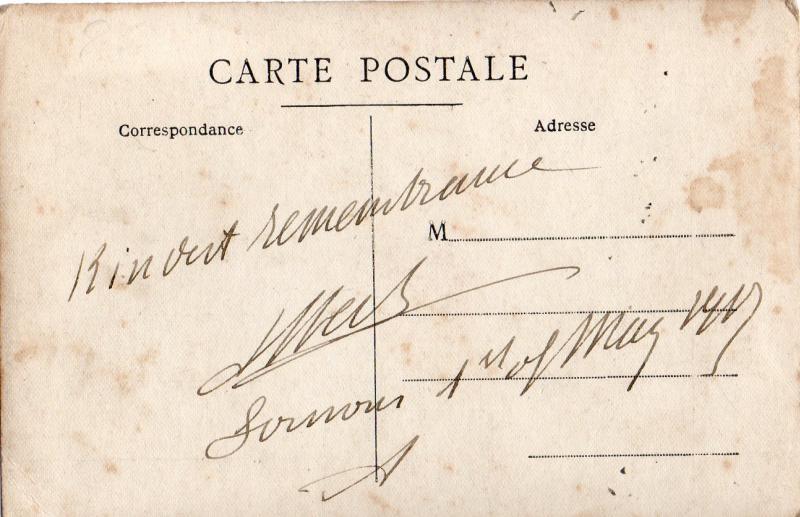 CARTE POSTALE
Correspondance
Adresse
Kindest remembrance
M
1st of May 1917